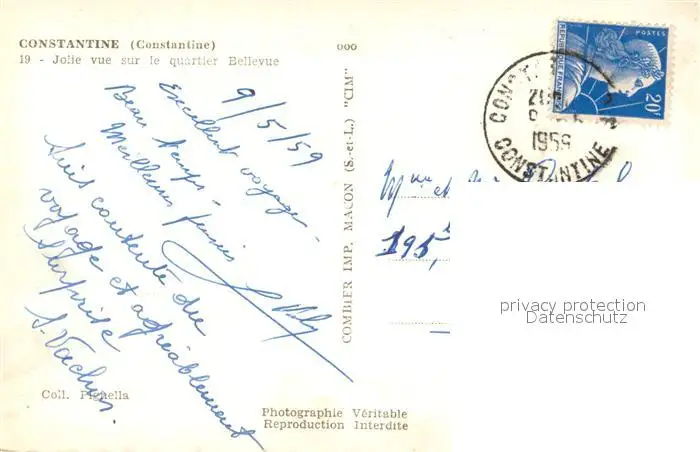 CONSTANTINE (Constantine)
19 - Jolie vue sur le quartier Bellevue
ooo
9/5/59
Excellent voyage -
Beau temps -
Meilleurs
Suis contente du
voyage et agréablement
surprise
COMBIER IMP. MACON (S.-et-L.) "CIM"
Coll. Pighella
Photographie Véritable
Reproduction Interdite
POSTES
REPUBLIQUE FRANÇAISE
20F
1959
CONSTANTINE
195,
privacy protection
Datenschutz